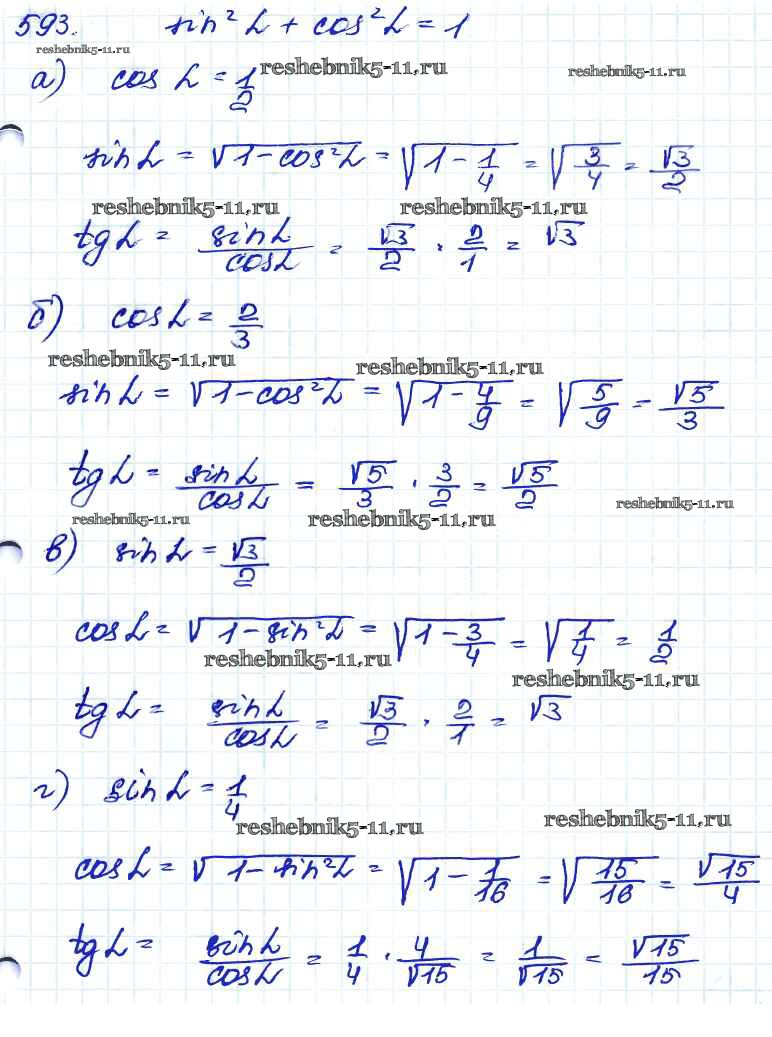 593. sin² α + cos² α = 1
reshebnik5-11.ru
а) cos α = 1/2 reshebnik5-11.ru reshebnik5-11.ru
sin α = √(1 - cos² α) = √(1 - 1/4) = √(3/4) = √3/2
reshebnik5-11.ru reshebnik5-11.ru
tg α = sin α/cos α = √3/2 · 2/1 = √3
б) cos α = 2/3
reshebnik5-11.ru reshebnik5-11.ru
sin α = √(1 - cos² α) = √(1 - 4/9) = √(5/9) = √5/3
tg α = sin α/cos α = √5/3 · 3/2 = √5/2
reshebnik5-11.ru reshebnik5-11.ru reshebnik5-11.ru
в) sin α = √3/2
cos α = √(1 - sin² α) = √(1 - 3/4) = √(1/4) = 1/2
reshebnik5-11.ru reshebnik5-11.ru
tg α = sin α/cos α = √3/2 · 2/1 = √3
г) sin α = 1/4
reshebnik5-11.ru reshebnik5-11.ru
cos α = √(1 - sin² α) = √(1 - 1/16) = √(15/16) = √15/4
tg α = sin α/cos α = 1/4 · 4/√15 = 1/√15 = √15/15